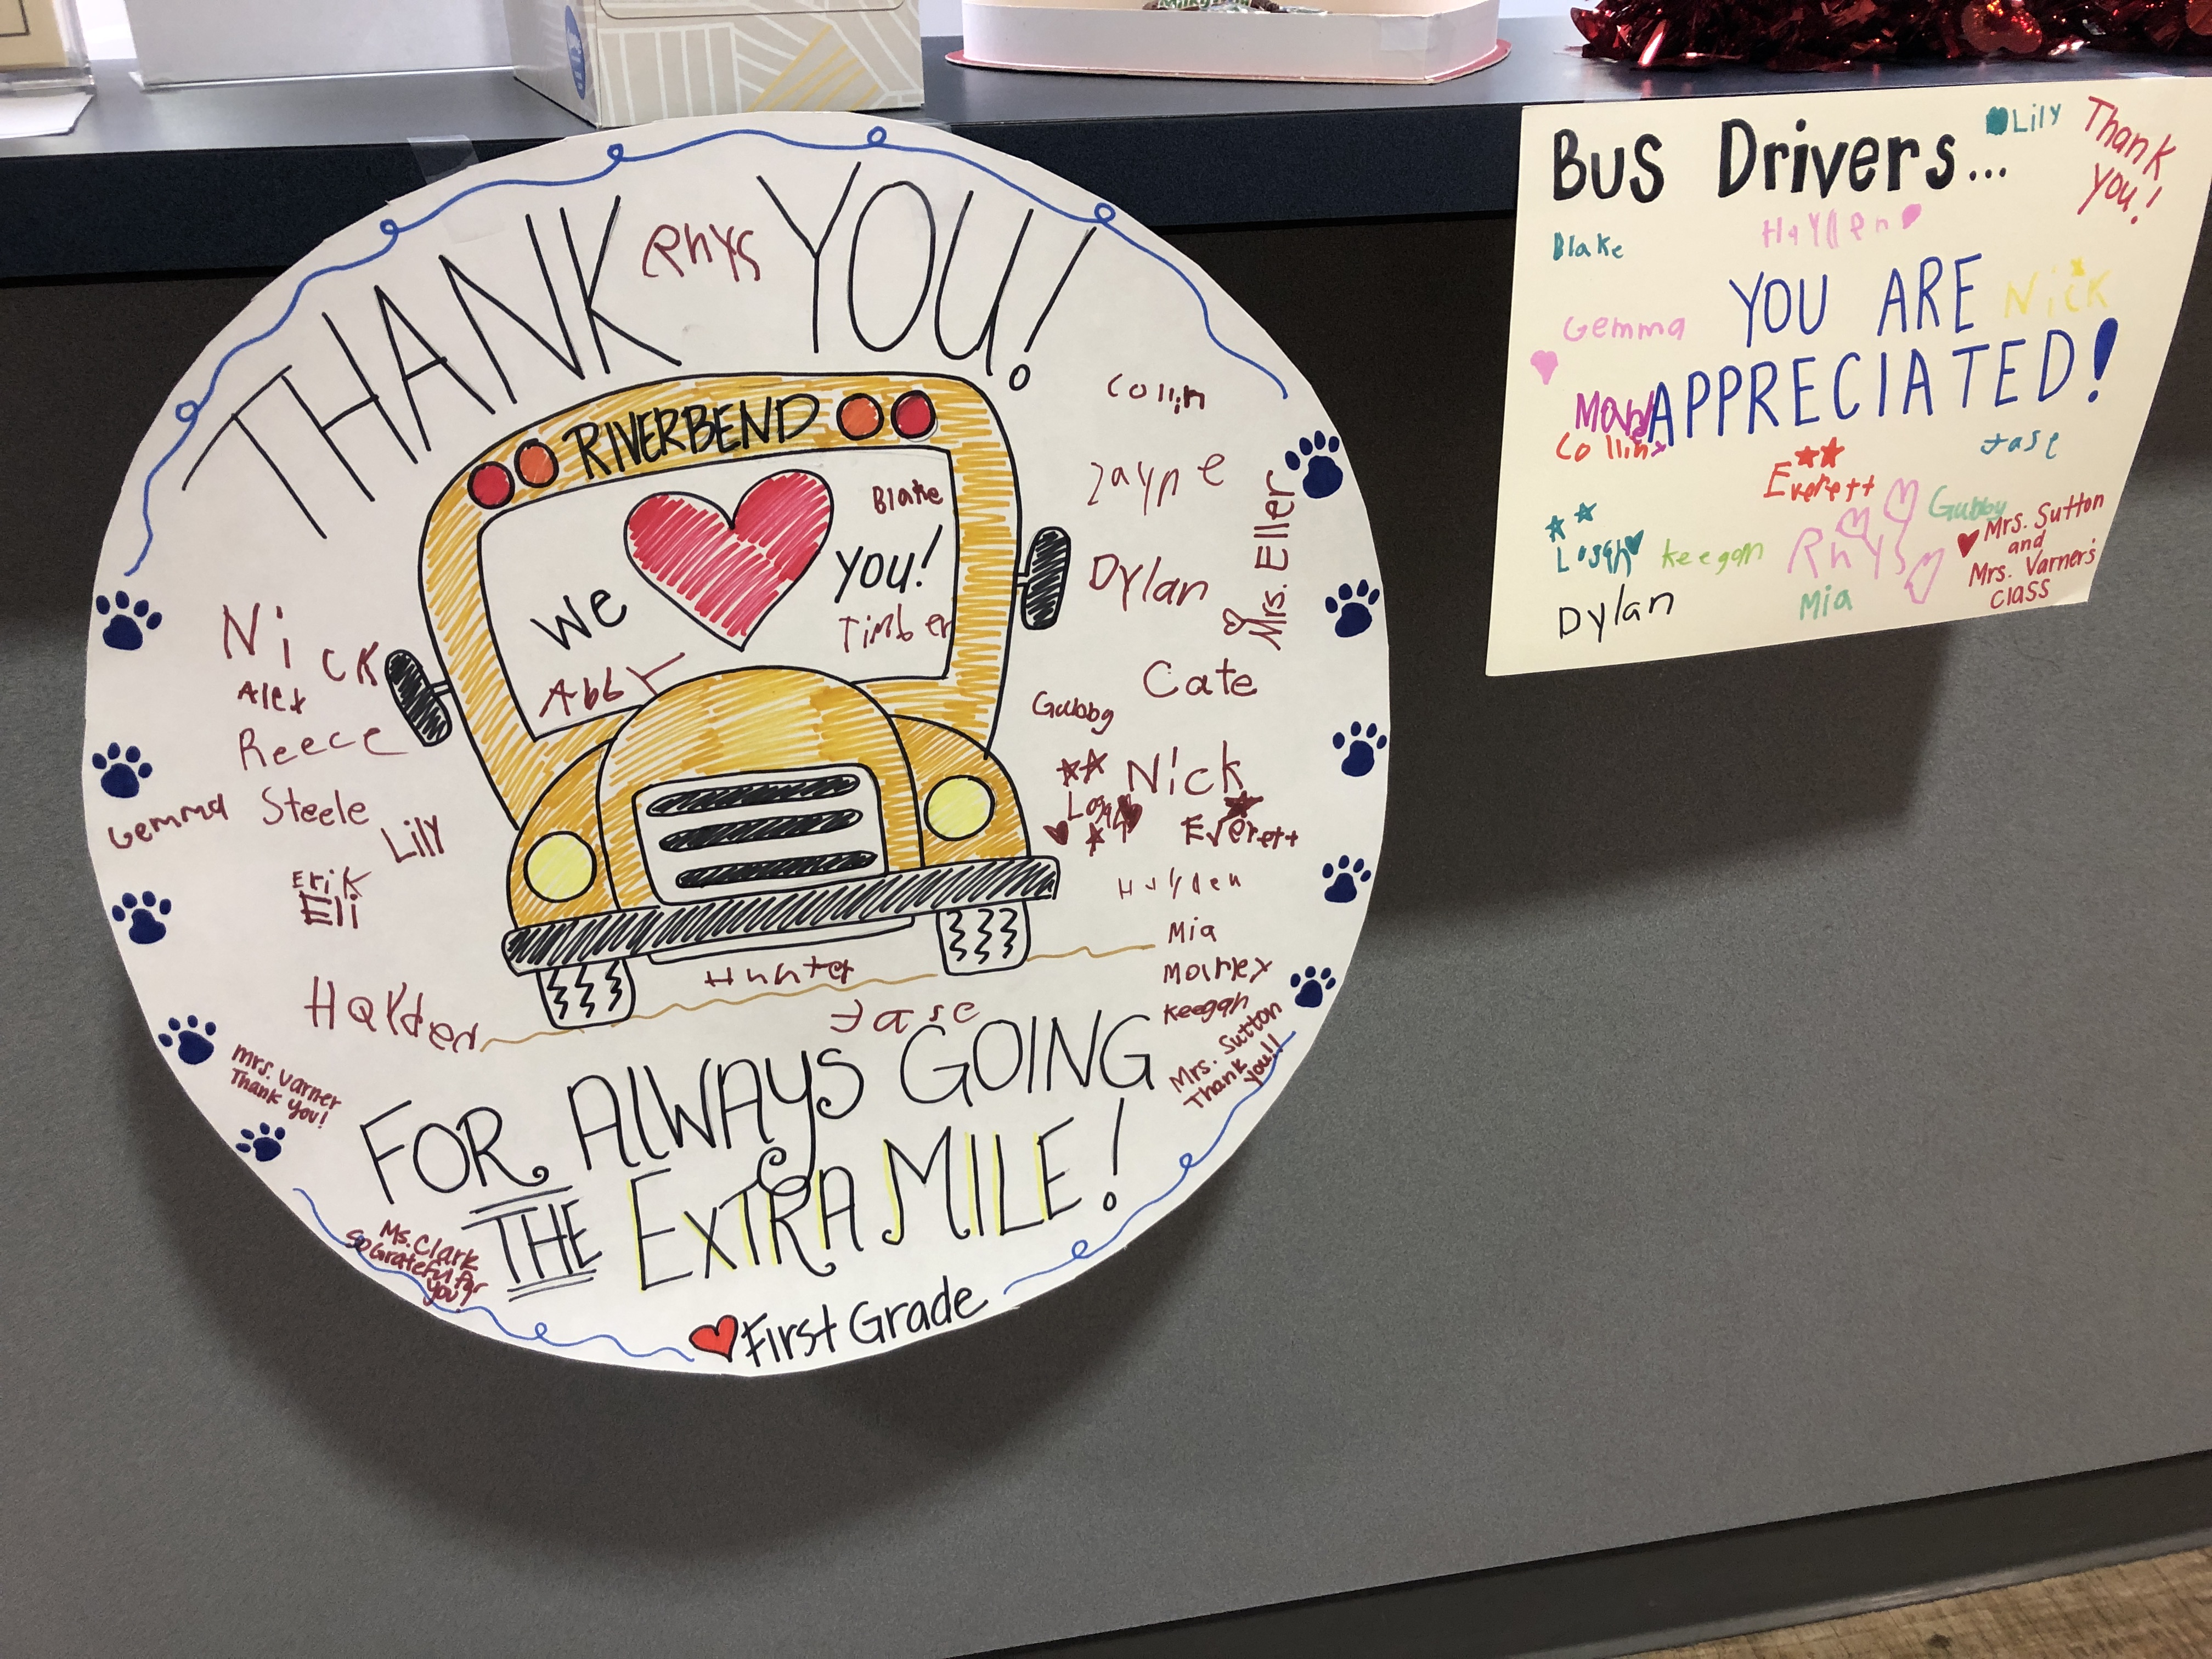 THANK YOU!
Rhys
RIVERBEND
Blake
We
YOU!
Timber
Abby
Collin
Zayne
Mrs. Eller
Dylan
Cate
Gubby
Nick
Logan
Everett
Hayden
Mia
Marley
Keegan
Mrs. Sutton
Thank
you!!
Nick
Alex
Reece
Gemma
Steele
Lilly
Erik
Eli
Holden
Hunter
Jase
Mrs. Varner
Thank you!
FOR ALWAYS GOING
THE EXTRA MILE!
Ms. Clark
So Grateful for
you!
First Grade
Bus Drivers...
Lily
Thank
you!
Blake
Hayden
YOU ARE
Nick
Gemma
APPRECIATED!
Collin
Everett
Jase
Gubby
Logan
Keegan
Rhys
Mrs. Sutton
and
Mrs. Varner's
Class
Dylan
Mia